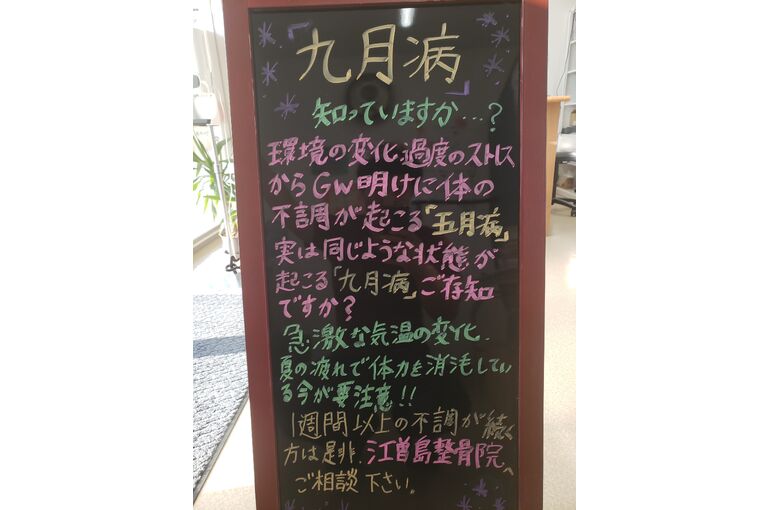 「九月病」
知っていますか…?
環境の変化、過度のストレス
からGW明けに体の
不調が起こる「五月病」
実は同じような状態が
起こる「九月病」ご存知
ですか?
急激な気温の変化、
夏の疲れで体力を消耗してい
る今が要注意!!
1週間以上の不調が続く
方は是非、江曽島整骨院へ
ご相談下さい。